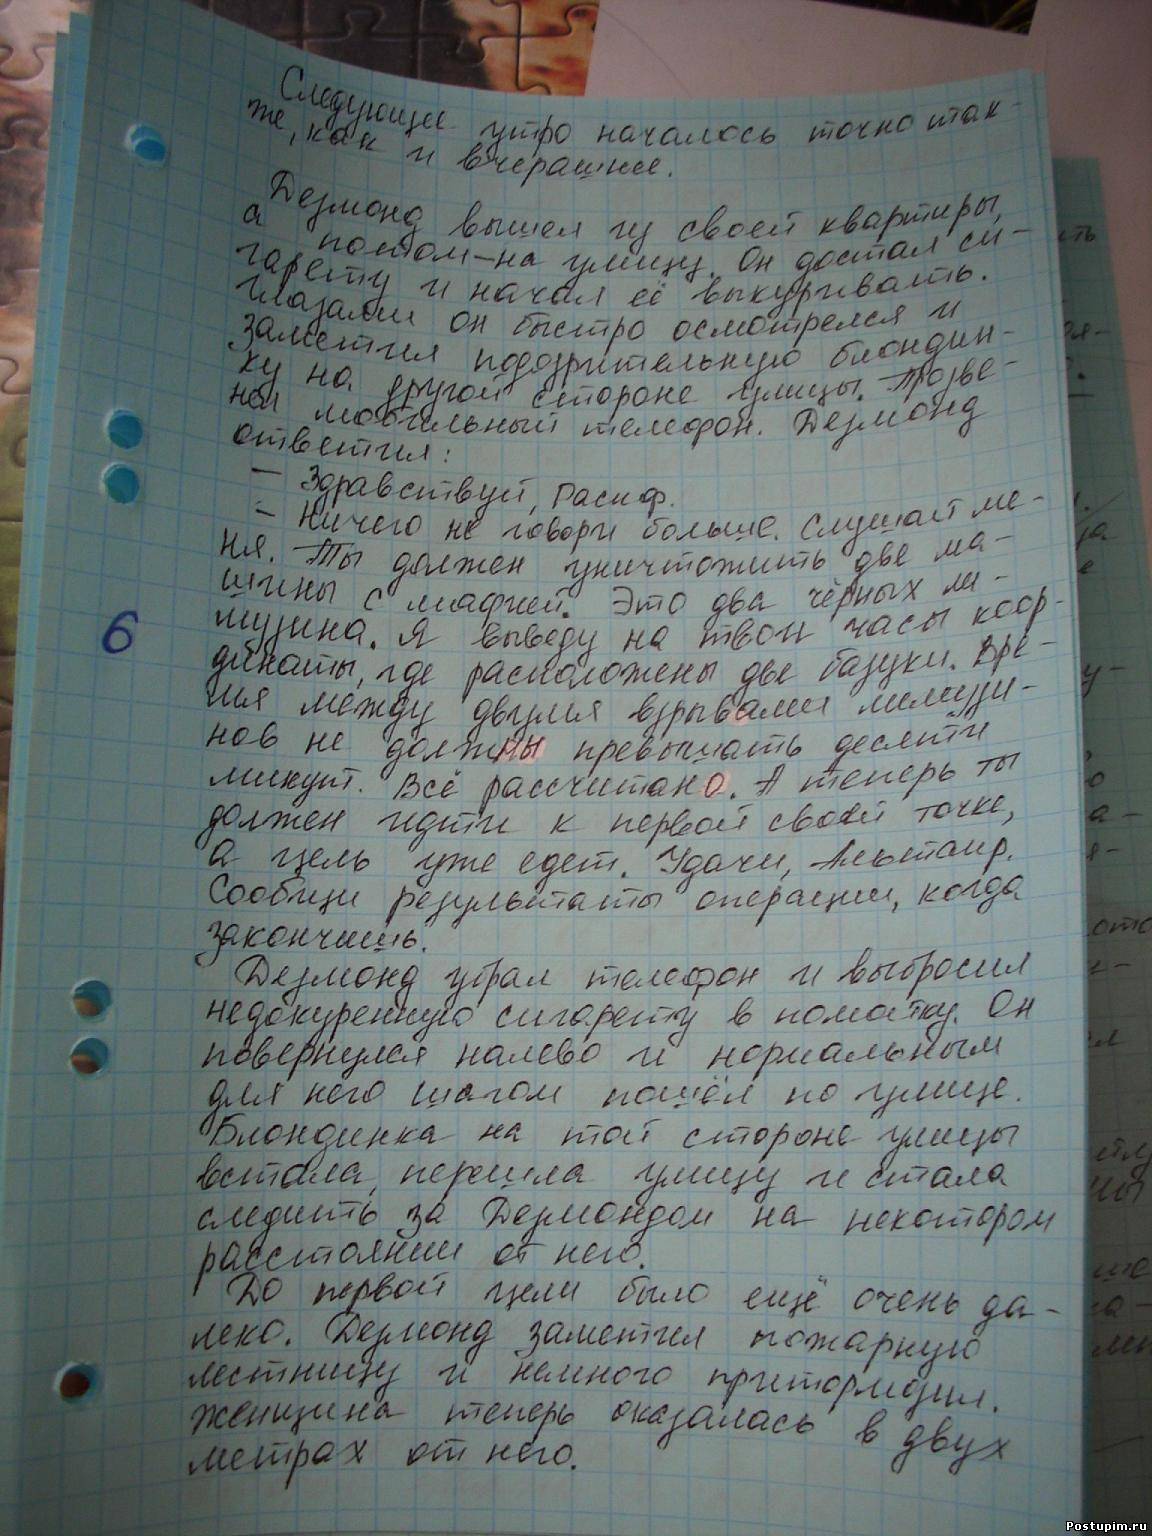 Следующее утро началось точно так-
же, как и вчерашнее.
Дезмонд вышел из своей квартиры,
а потом – на улицу. Он достал си-
гарету и начал её выкуривать.
Глазами он быстро осмотрелся и
заметил подозрительную блондин-
ку на другой стороне улицы. Позве-
нел мобильный телефон. Дезмонд
ответил:
– Здравствуй, Расиф.
– Ничего не говори больше. Слушай ме-
ня. Ты должен уничтожить две ма-
шины с мафией. Это два чёрных ли-
музина. Я выведу на твои часы коор-
динаты, где расположены две базуки. Вре-
мя между двумя взрывами лимузи-
нов не должны превышать десяти
минут. Всё рассчитано. А теперь ты
должен идти к первой своей точке,
а цель уже едет. Удачи, Альтаир.
Сообщи результаты операции, когда
закончишь.
Дезмонд убрал телефон и выбросил
недокуренную сигарету в помойку. Он
повернулся налево и нормальным
для него шагом пошёл по улице.
Блондинка на той стороне улицы
встала, перешла улицу и стала
следить за Дезмондом на некотором
расстоянии от него.
До первой цели было ещё очень да-
леко. Дезмонд заметил пожарную
лестницу и немного притормозил.
Женщина теперь оказалась в двух
метрах от него.
6
Postupim.ru